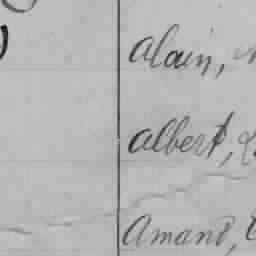 Alain,
Albert,
Amand,